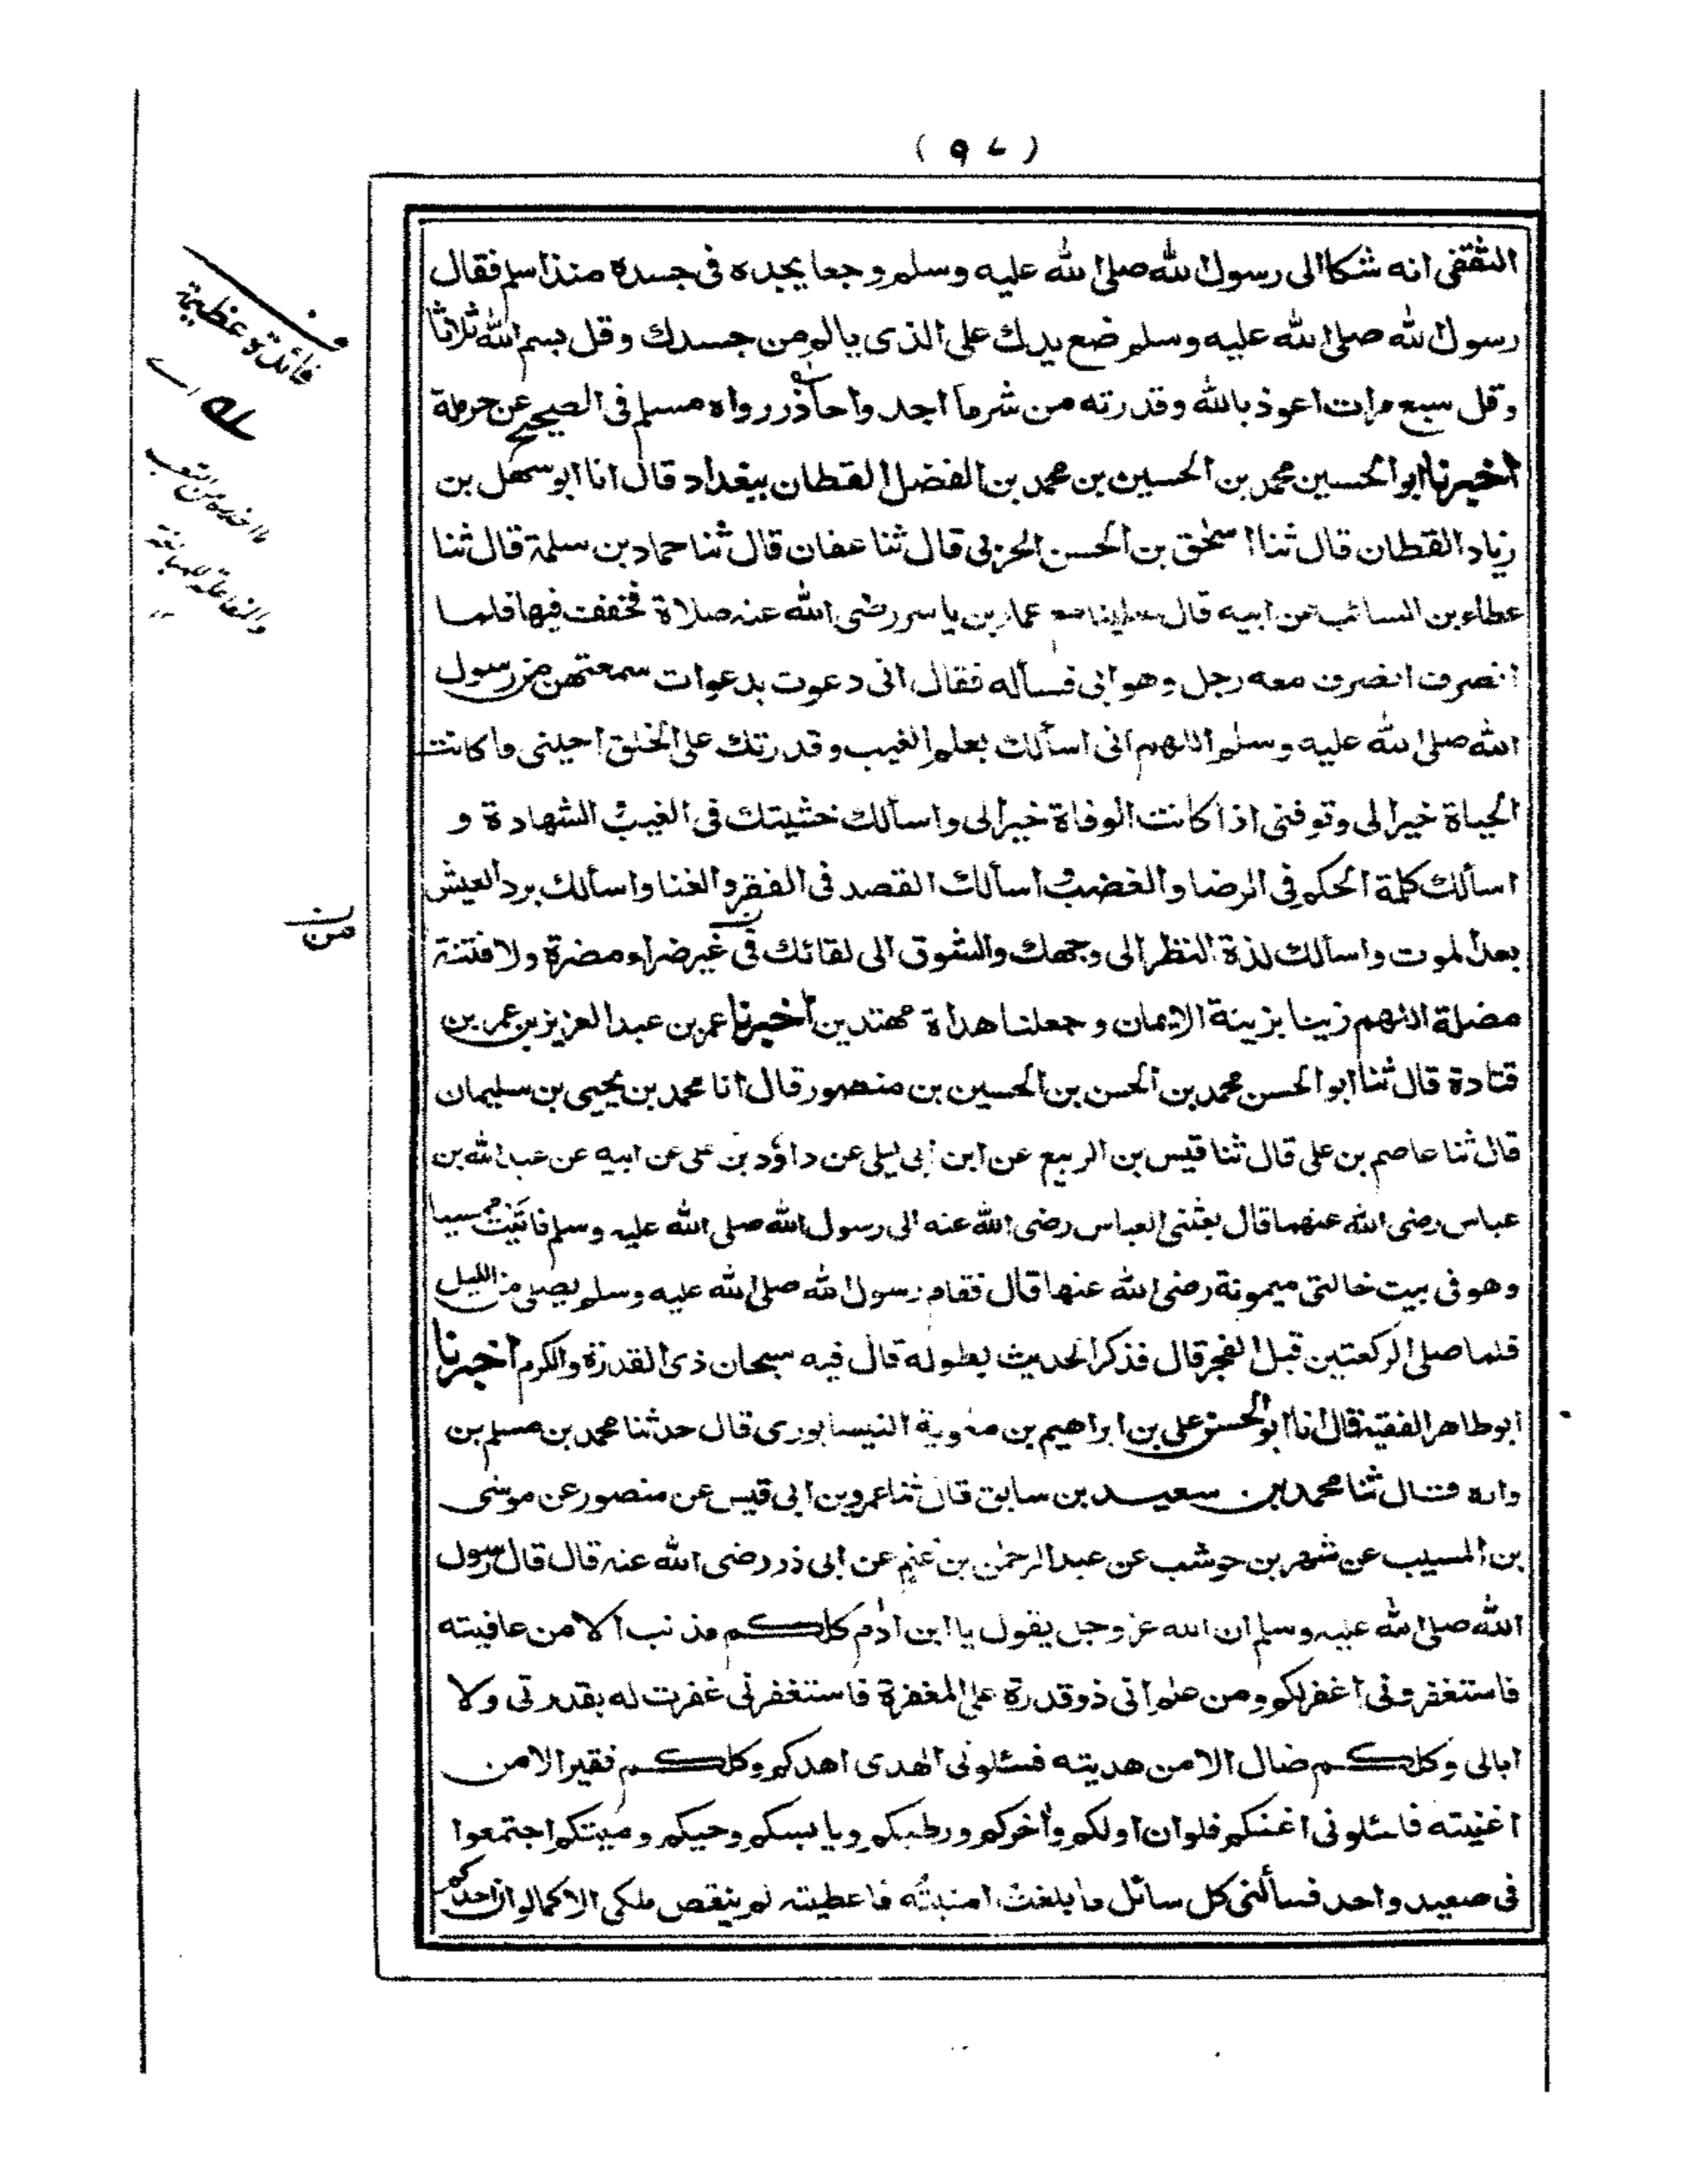 (٩٧)
الثقفى انه شكا الى رسول الله صلى الله عليه وسلم وجعا يجده فى جسده منذ اسلم فقال
رسول الله صلى الله عليه وسلم ضع يدك على الذى يالم من جسدك وقل بسم الله ثلاثا
وقل سبع مرات اعوذ بالله وقدرته من شر ما اجد واحاذر رواه مسلم فى الصحيح عن حرملة
اخبرنا ابو الحسين محمد بن الحسين بن محمد بن الفضل القطان ببغداد قال انا ابو سهل بن
زياد القطان قال ثنا اسحٰق بن الحسن الحربى قال ثنا عفان قال ثنا حماد بن سلمة قال ثنا
عطاء بن السائب عن ابيه قال صلينا مع عمار بن ياسر رضى الله عنه صلاة فخففت فيها فلما
انصرف انصرف معه رجل وهو ابى فسأله فقال انى دعوت بدعوات سمعتهن من رسول
الله صلى الله عليه وسلم اللهم انى اسألك بعلم الغيب وقدرتك على الخلق احينى ما كانت
الحياة خيرا لى وتوفنى اذا كانت الوفاة خيرا لى واسألك خشيتك فى الغيب الشهادة و
اسألك كلمة الحكم فى الرضا والغضب و اسألك القصد فى الفقر والغنا واسألك برد العيش
بعد الموت واسألك لذة النظر الى وجهك والشوق الى لقائك فى غير ضراء مضرة ولا فتنة
مضلة اللهم زينا بزينة الايمان وجعلنا هداة مهتدين اخبرنا عمر بن عبد العزيز بن عمر بن
قتادة قال ثنا ابو الحسن محمد بن الحسن بن الحسين بن منصور قال انا محمد بن يحيى بن سليمان
قال ثنا عاصم بن على قال ثنا قيس بن الربيع عن ابن ابى ليلى عن داؤد بن على عن ابيه عن عبد الله بن
عباس رضى الله عنهما قال بعثنى العباس رضى الله عنه الى رسول الله صلى الله عليه وسلم فاتيته ممسيا
وهو فى بيت خالتى ميمونة رضى الله عنها قال فقام رسول الله صلى الله عليه وسلم يصلى من الليل
فلما صلى الركعتين قبل الفجر قال فذكر الحديث بطوله قال فيه سبحان ذى القدرة والكرم اخبرنا
ابو طاهر الفقيه قال انا ابو الحسن على بن ابراهيم بن معوية النيسابورى قال حدثنا محمد بن مسلم بن
واره قال ثنا محمد بن سعيد بن سابق قال ثنا عمرو بن ابى قيس عن منصور عن موسى
بن المسيب عن شهر بن حوشب عن عبد الرحمٰن بن غنم عن ابى ذر رضى الله عنه قال قال رسول
الله صلى الله عليه وسلم ان الله عز وجل يقول يا ابن اٰدم كلكم مذنب الا من عافيته
فاستغفرونى اغفر لكم ومن علم انى ذو قدرة على المغفرة فاستغفرنى غفرت له بقدرتى ولا
ابالى وكلكم ضال الا من هديته فسئلونى الهدى اهدكم وكلكم فقير الا من
اغنيته فاسئلونى اغنكم فلو ان اولكم واٰخركم ورطبكم ويابسكم وحيكم وميتكم اجتمعوا
فى صعيد واحد فسألنى كل سائل ما بلغت امنيته فاعطيته لم ينقص ملكى الا كما لو ان احدكم
فائدة عظيمة
من